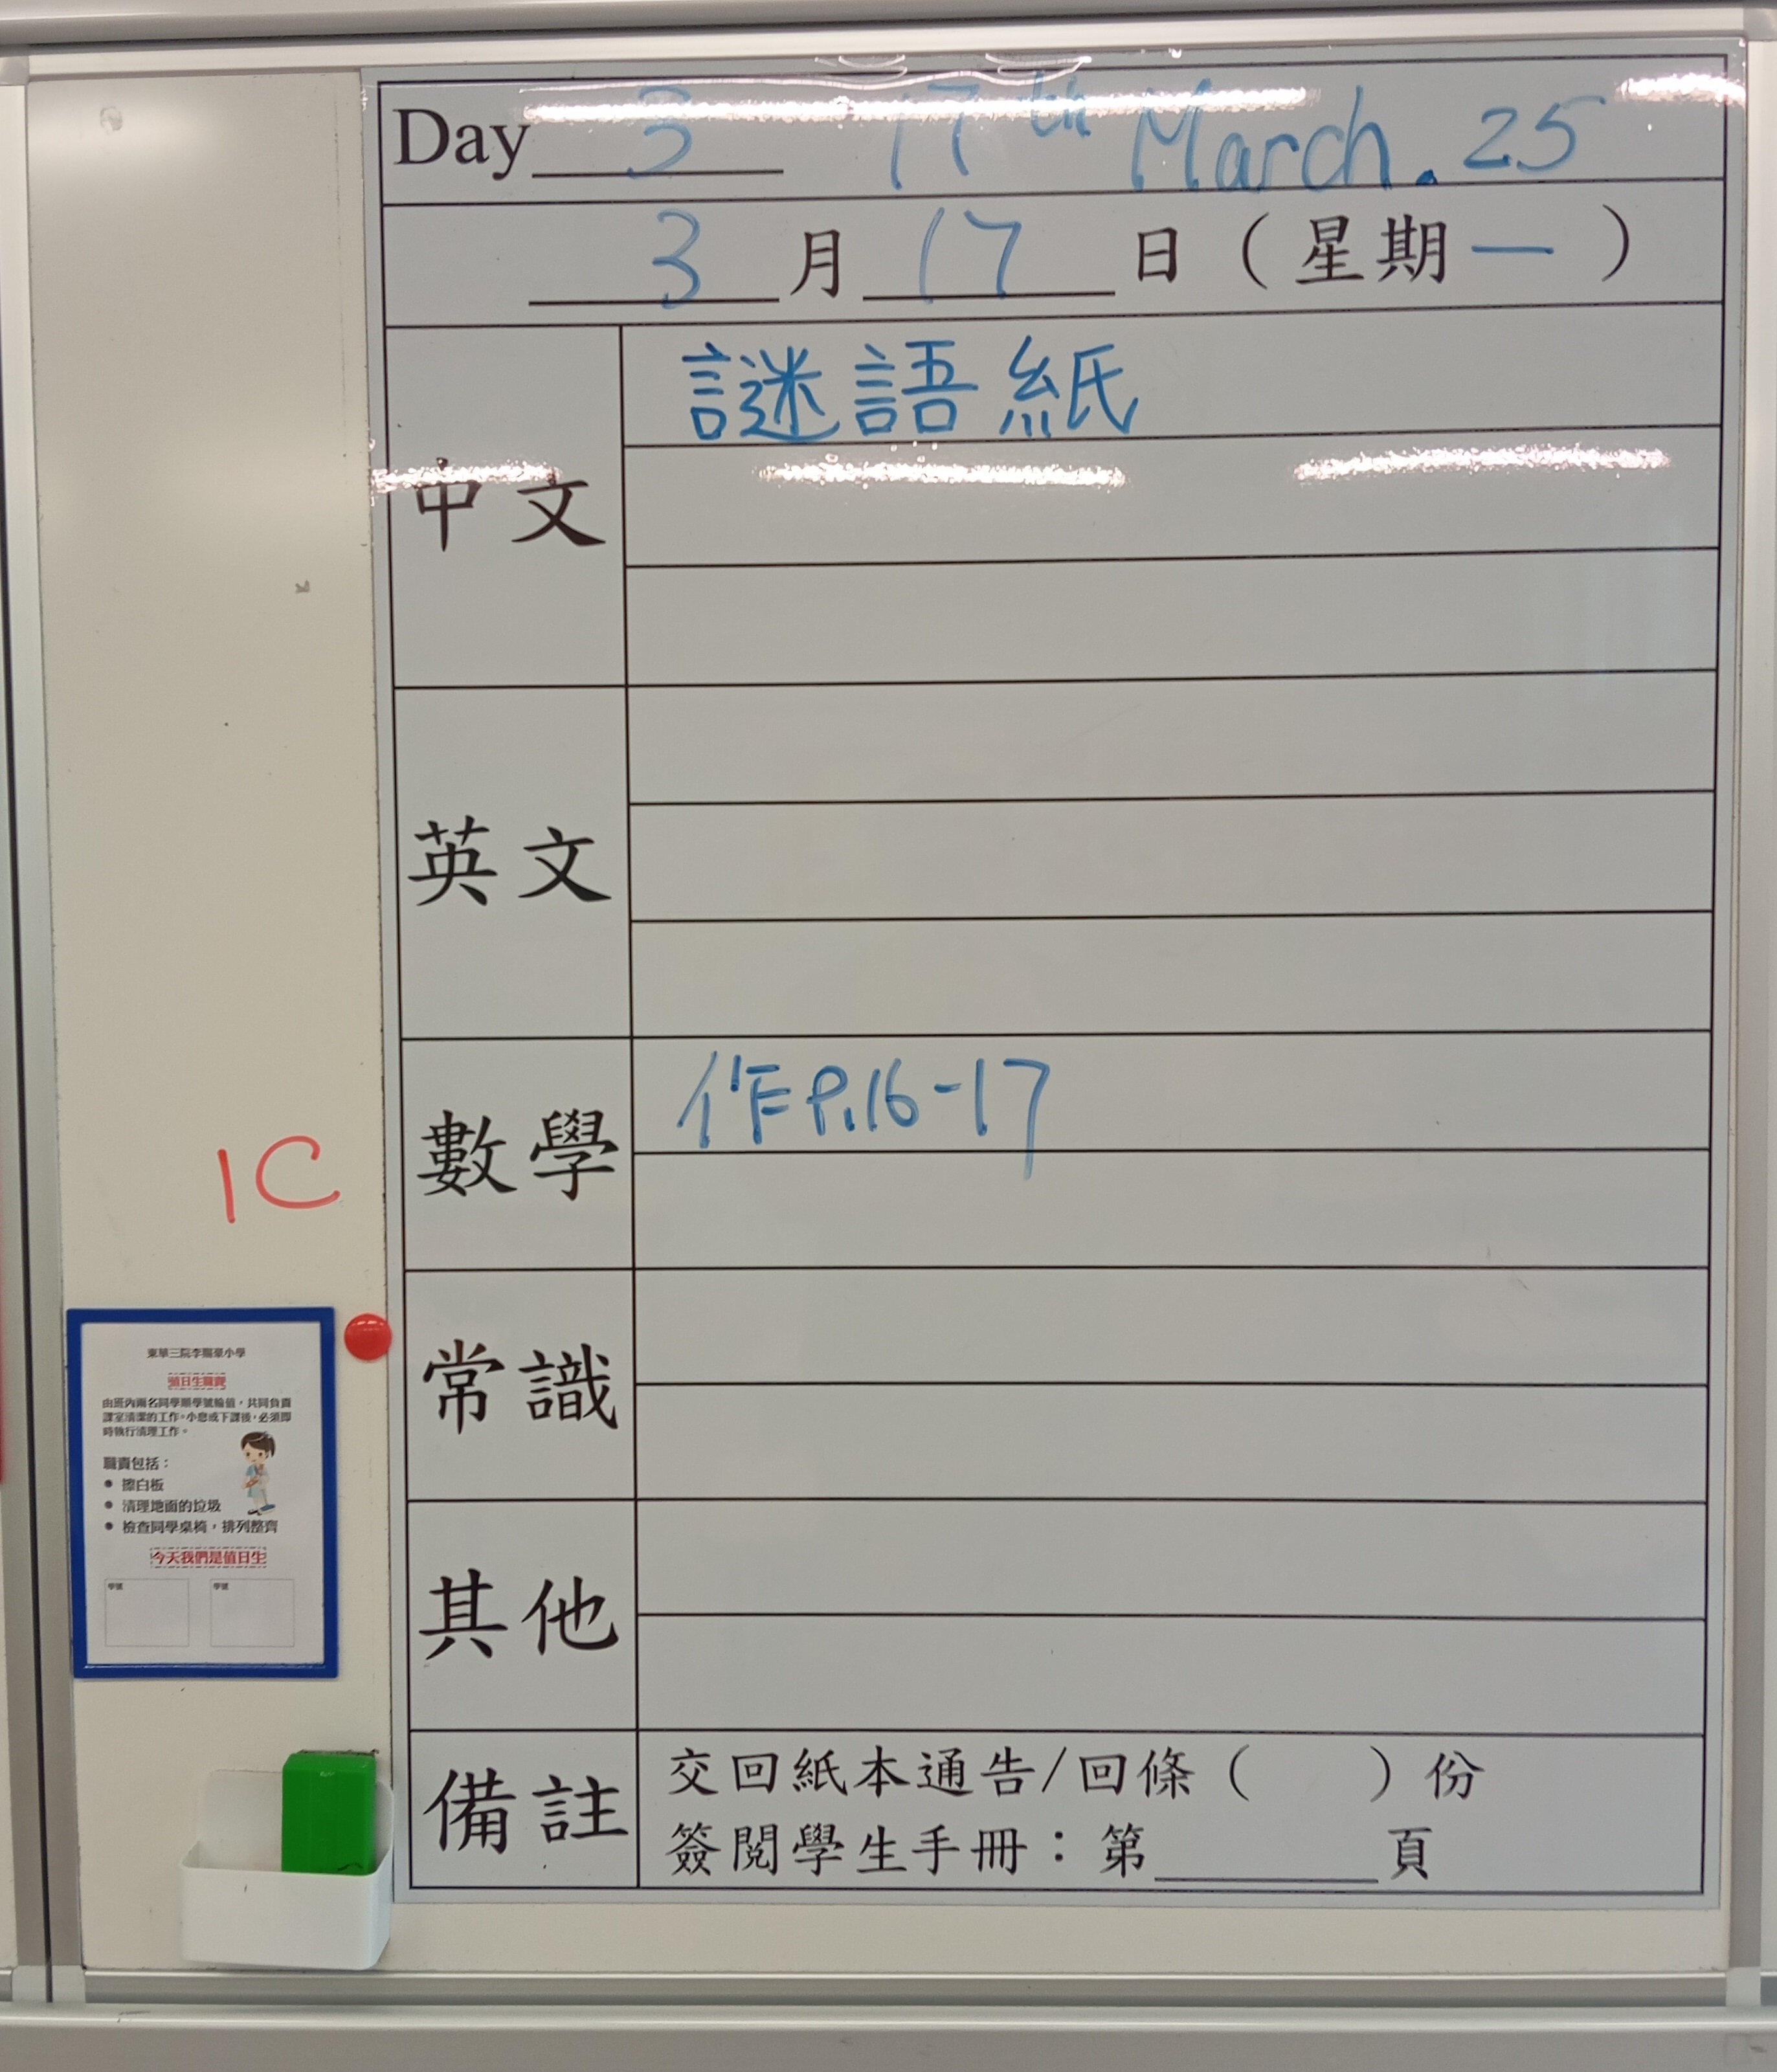 Day 3 17th March. 25
3 月 17 日 ( 星期 一 )
中文
謎語紙
英文
數學
作 P.16-17
常識
其他
備註
交回紙本通告/回條 ( ) 份
簽閱學生手冊:第 頁
1C
東華三院李賜豪小學
值日生職責
由班內兩名同學順學號輪值,共同負責
課室清潔的工作。小息或下課後,必須即
時執行清理工作。
職責包括:
● 擦白板
● 清理地面的垃圾
● 檢查同學桌椅,排列整齊
今天我們是值日生
學號 學號